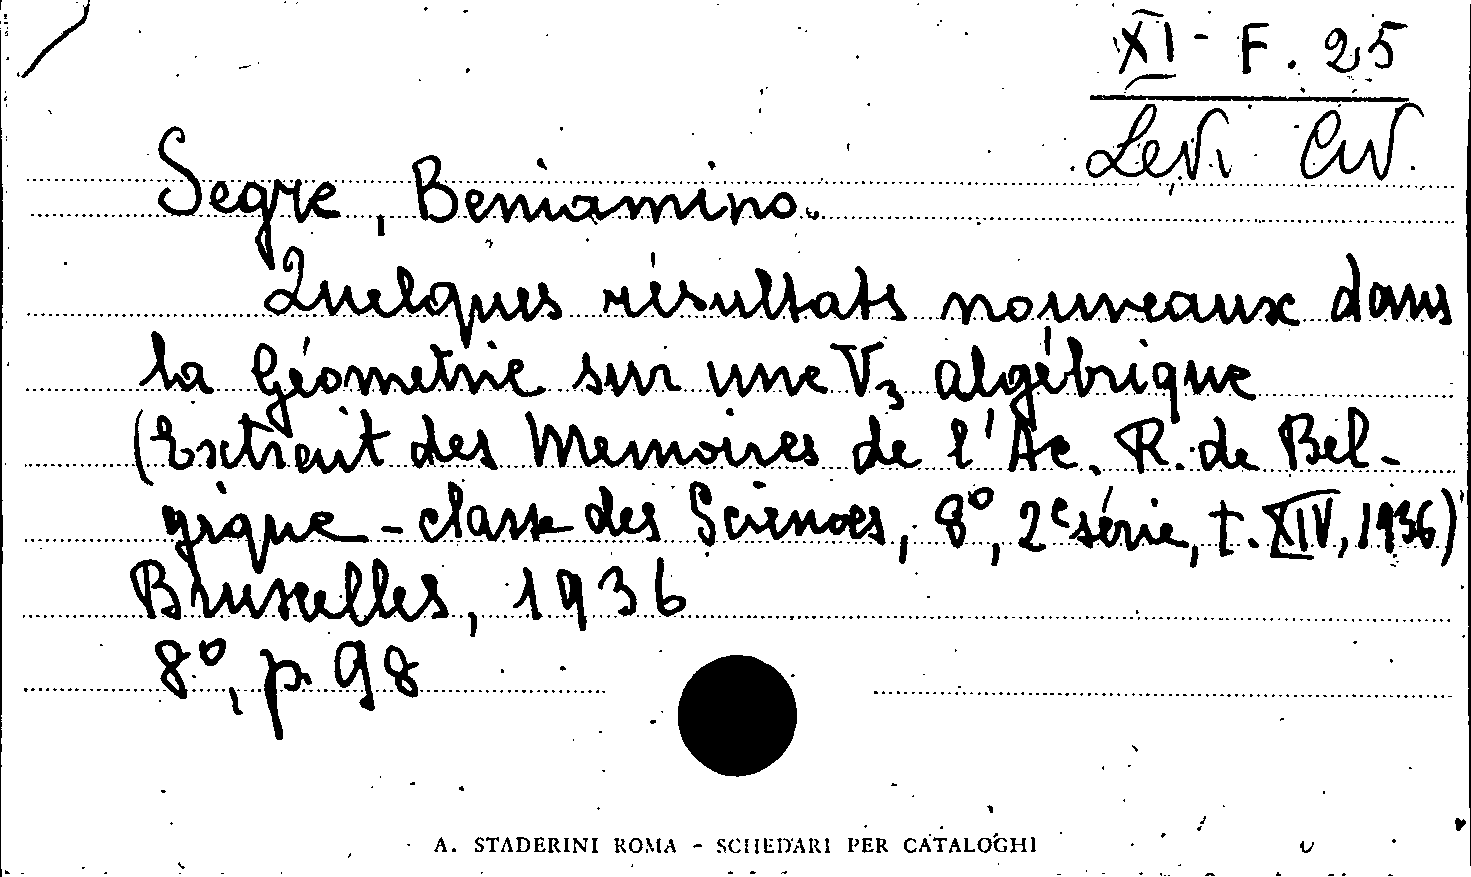 XI - F. 25
Levi Civ.
Segre, Beniamino.
Quelques résultats nouveaux dans
la Géométrie sur une V₃ algébrique
(Extrait des Memoires de l'Ac. R. de Bel-
gique - classe des Sciences, 8°, 2e série, t. XIV, 1936)
Bruxelles, 1936
8°, p. 98
A. STADERINI ROMA - SCHEDARI PER CATALOGHI